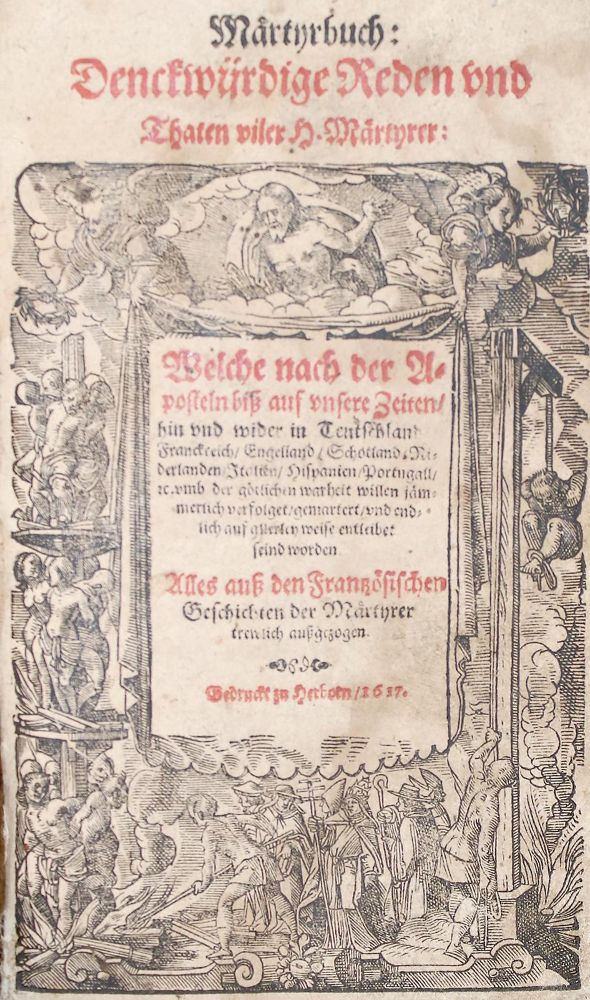 Mårtyrbuch:
Denckwürdige Reden vnd
Thaten viler H. Mårtyrer:
Welche nach der A-
posteln biß auf vnsere Zeiten/
hin vnd wider in Teutschland
Franckreich/ Engelland/ Schotland/ Ni-
derlanden/ Italien/ Hispanien/ Portugall/
ꝛc. vmb der götlichen warheit willen jäm-
merlich verfolget/ gemartert/ vnd end-
lich auf allerley weise entleibet
seind worden
Alles auß den Frantzösischen
Geschichten der Mårtyrer
trewlich außgezogen.
Gedruckt zu Herborn/